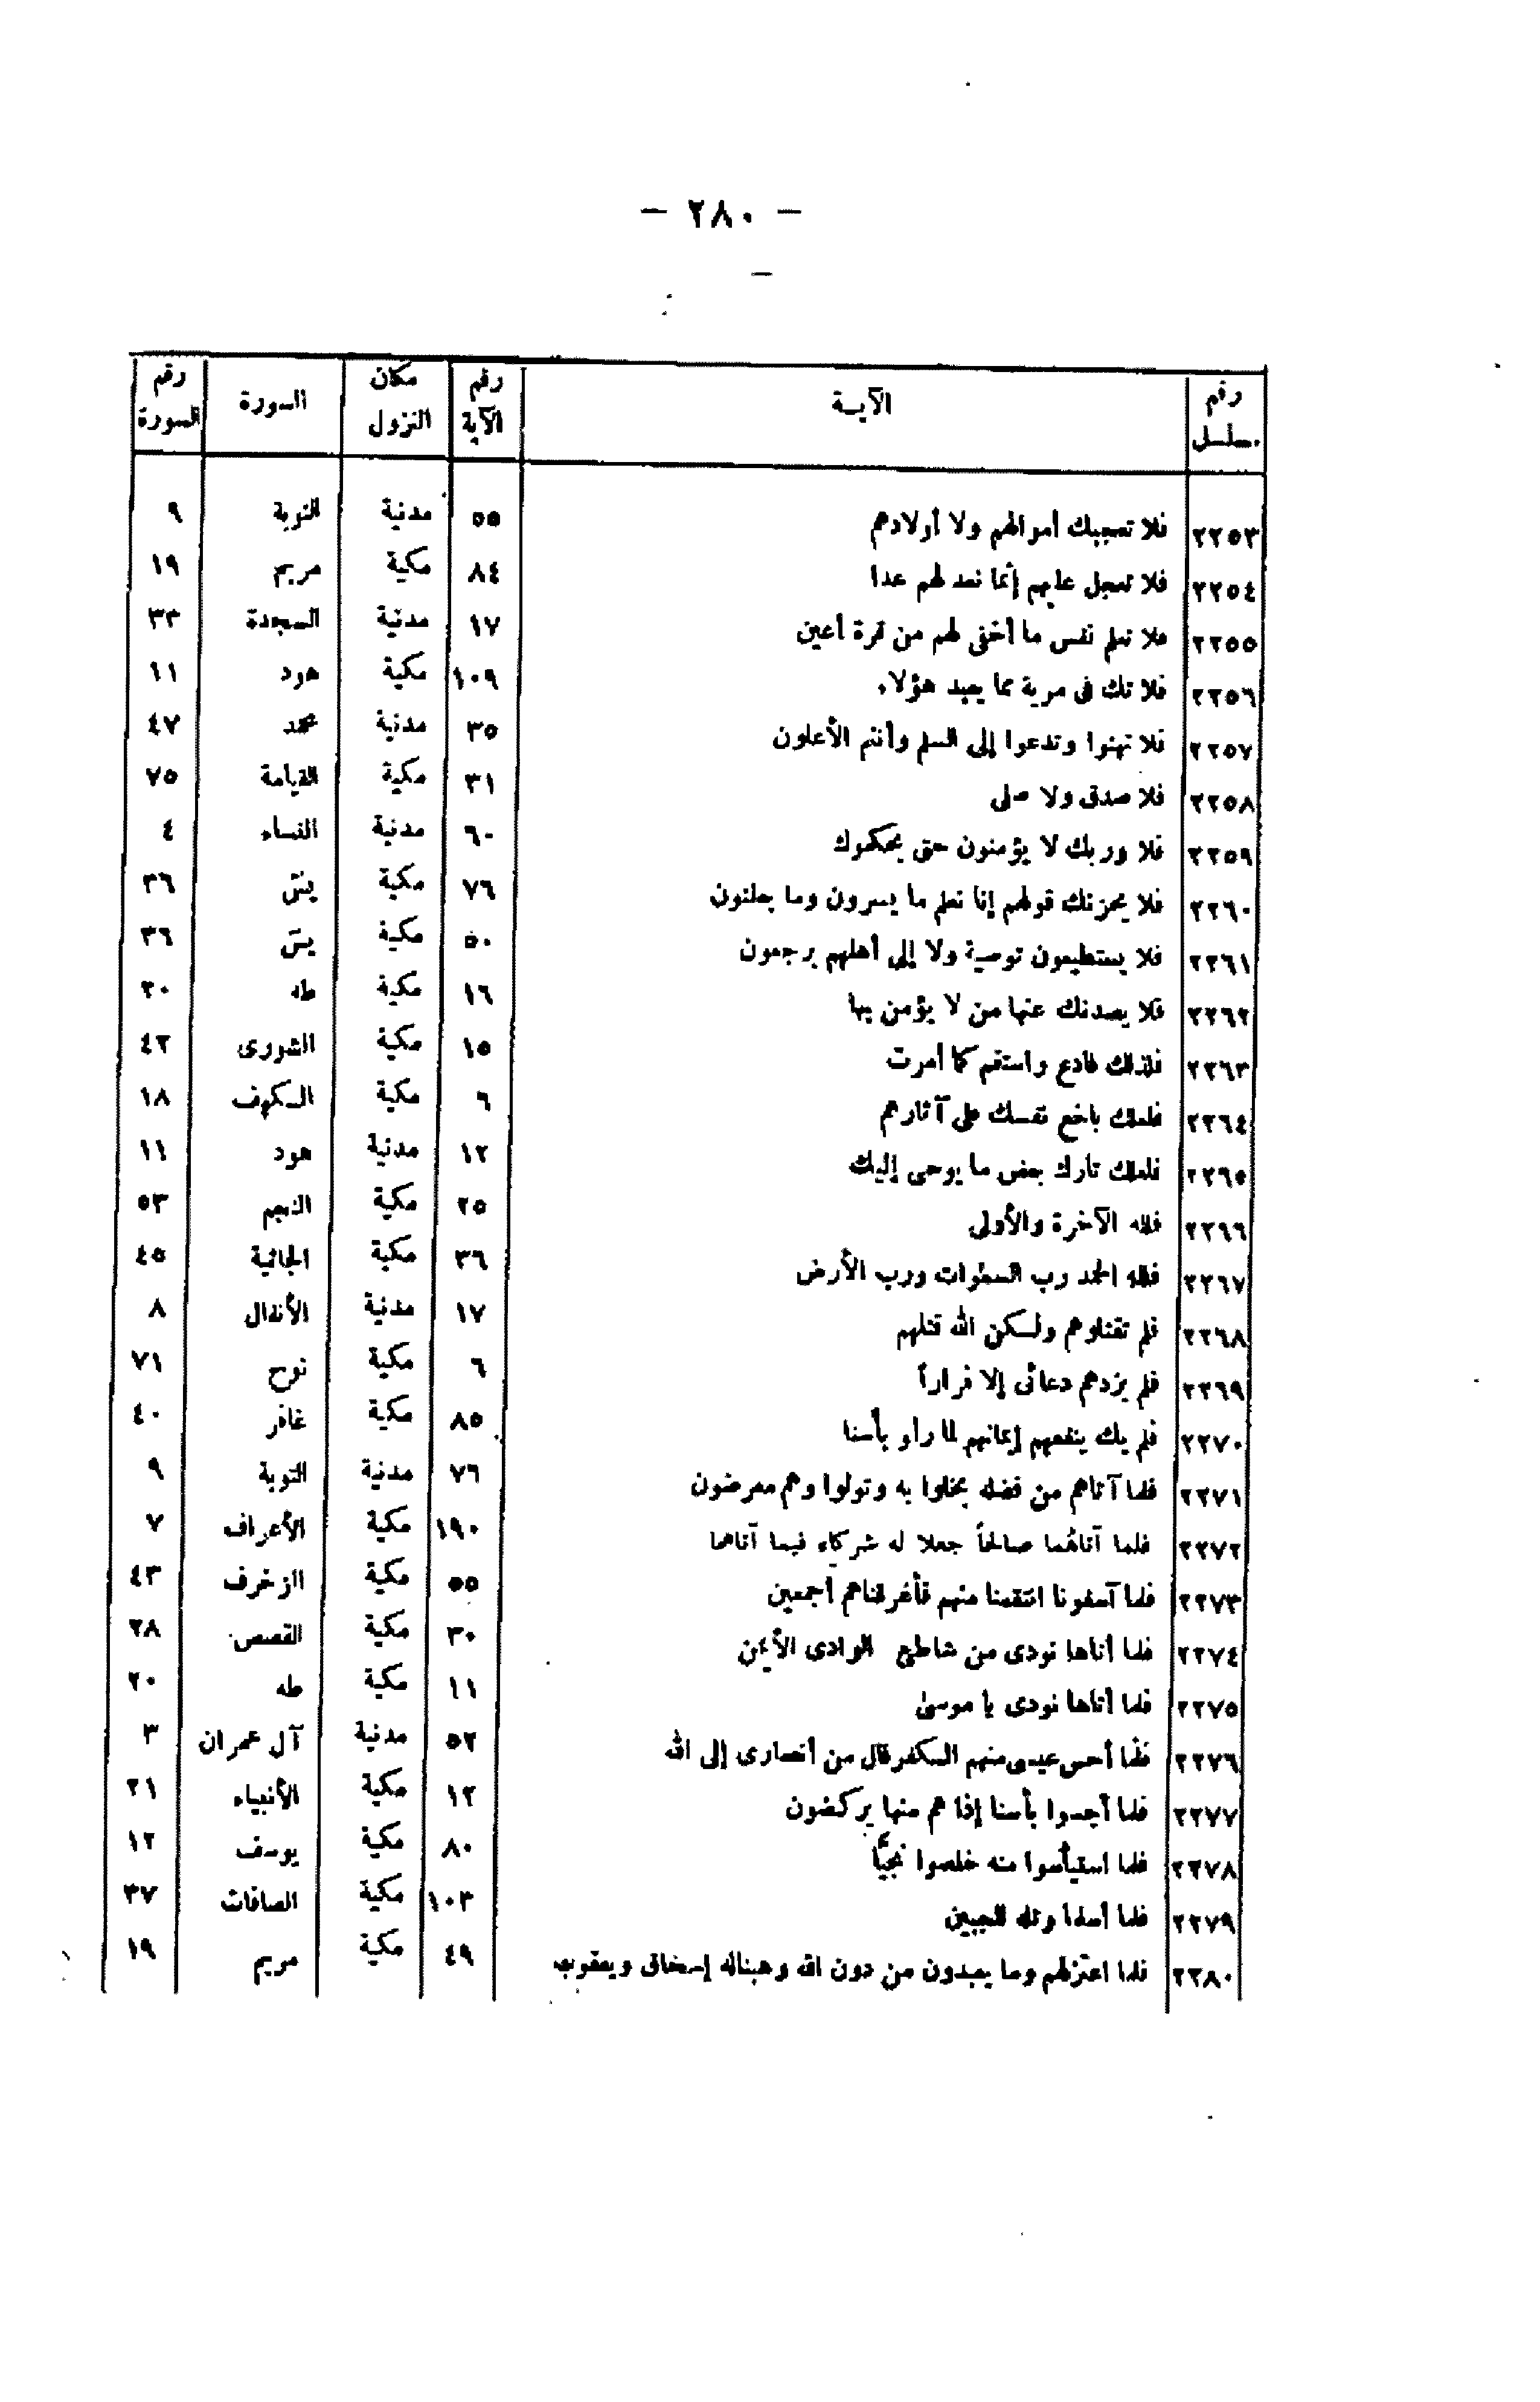 — ٢٨٠ —
رقم مسلسل | الآيــة | رقم الآية | مكان النزول | السورة | رقم السورة
٢٢٥٣ | فلا تعجبك أموالهم ولا أولادهم | ٥٥ | مدنية | التوبة | ٩
٢٢٥٤ | فلا تعجل عليهم إنما نعد لهم عدا | ٨٤ | مكية | مريم | ١٩
٢٢٥٥ | فلا تعلم نفس ما أخفى لهم من قرة أعين | ١٧ | مدنية | السجدة | ٣٣
٢٢٥٦ | فلا تك فى مرية مما يعبد هؤلاء | ١٠٩ | مكية | هود | ١١
٢٢٥٧ | فلا تهنوا وتدعوا إلى السلم وأنتم الأعلون | ٣٥ | مدنية | محمد | ٤٧
٢٢٥٨ | فلا صدق ولا صلى | ٣١ | مكية | القيامة | ٧٥
٢٢٥٩ | فلا وربك لا يؤمنون حتى يحكموك | ٦٠ | مدنية | النساء | ٤
٢٢٦٠ | فلا يحزنك قولهم إنا نعلم ما يسرون وما يعلنون | ٧٦ | مكية | يسّ | ٣٦
٢٢٦١ | فلا يستطيعون توصية ولا إلى أهلهم يرجعون | ٥٠ | مكية | يسّ | ٣٦
٢٢٦٢ | فلا يصدنك عنها من لا يؤمن بها | ١٦ | مكية | طه | ٢٠
٢٢٦٣ | فلذلك فادع واستقم كما أمرت | ١٥ | مكية | الشورى | ٤٢
٢٢٦٤ | فلعلك باخع نفسك على آثارهم | ٦ | مكية | الكهف | ١٨
٢٢٦٥ | فلعلك تارك بعض ما يوحى إليك | ١٢ | مدنية | هود | ١١
٢٢٦٦ | فلله الآخرة والأولى | ٢٥ | مكية | النجم | ٥٣
٢٢٦٧ | فلله الحمد رب السمٰوات ورب الأرض | ٣٦ | مكية | الجاثية | ٤٥
٢٢٦٨ | فلم تقتلوهم ولكن الله قتلهم | ١٧ | مدنية | الأنفال | ٨
٢٢٦٩ | فلم يزدهم دعائى إلا فراراً | ٦ | مكية | نوح | ٧١
٢٢٧٠ | فلم يك ينفعهم إيمانهم لما رأو بأسنا | ٨٥ | مكية | غافر | ٤٠
٢٢٧١ | فلما آتاهم من فضله بخلوا به وتولوا وهم معرضون | ٧٦ | مدنية | التوبة | ٩
٢٢٧٢ | فلما آتاهُما صالحاً جعلا له شركاء فيما آتاهما | ١٩٠ | مكية | الأعراف | ٧
٢٢٧٣ | فلما آسفونا انتقمنا منهم فأغرقناهم أجمعين | ٥٥ | مكية | الزخرف | ٤٣
٢٢٧٤ | فلما أتاها نودى من شاطئ الوادى الأيمن | ٣٠ | مكية | القصص | ٢٨
٢٢٧٥ | فلما أتاها نودى يا موسىٰ | ١١ | مكية | طه | ٢٠
٢٢٧٦ | فلّما أحس عيسى منهم الكفر قال من أنصارى إلى الله | ٥٢ | مدنية | آل عمران | ٣
٢٢٧٧ | فلما أحسوا بأسنا إذا هم منها يركضون | ١٢ | مكية | الأنبياء | ٢١
٢٢٧٨ | فلما استيأسوا منه خلصوا نجيًّا | ٨٠ | مكية | يوسف | ١٢
٢٢٧٩ | فلما أسلما وتله للجبين | ١٠٣ | مكية | الصافات | ٣٧
٢٢٨٠ | فلما اعتزلهم وما يعبدون من دون الله وهبناله إسحاق ويعقوب | ٤٩ | مكية | مريم | ١٩